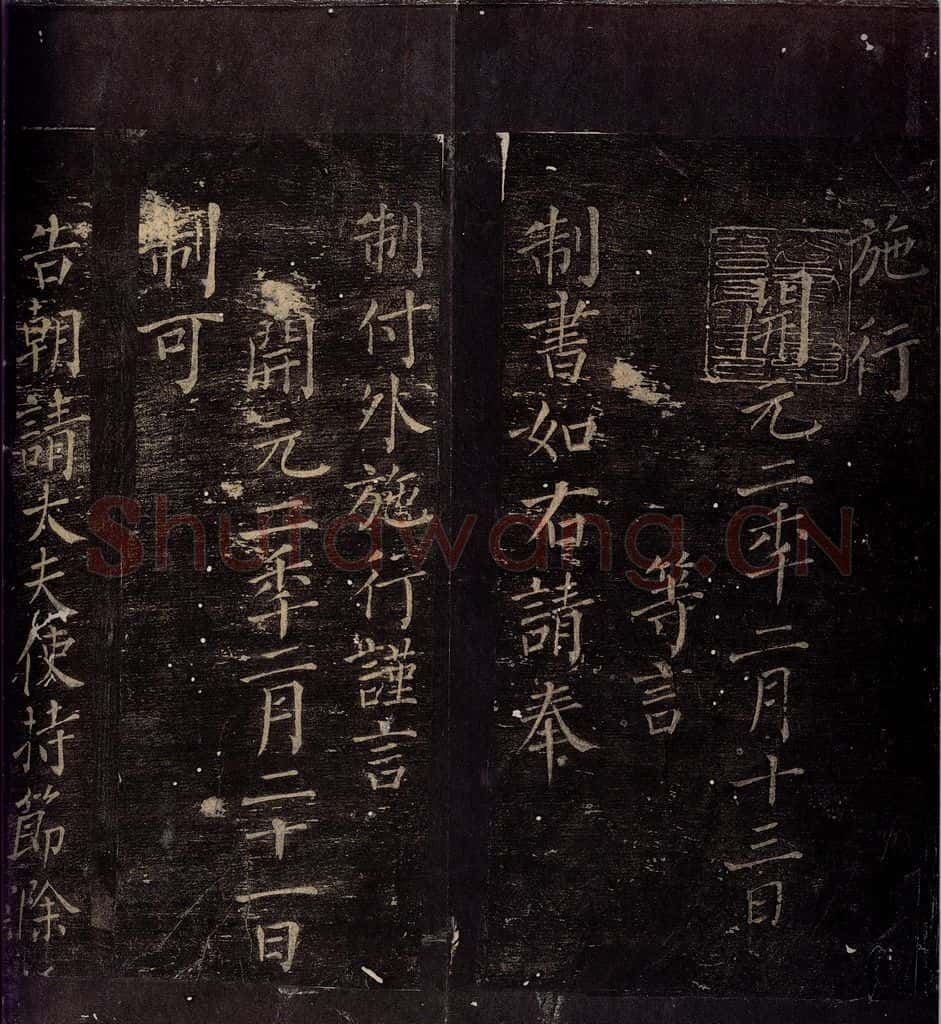 施行
開元二年二月十三日
等言
制書如右請奉
制付外施行謹言
開元二年二月二十一日
制可
告朝請大夫使持節滁
Shufawang.CN